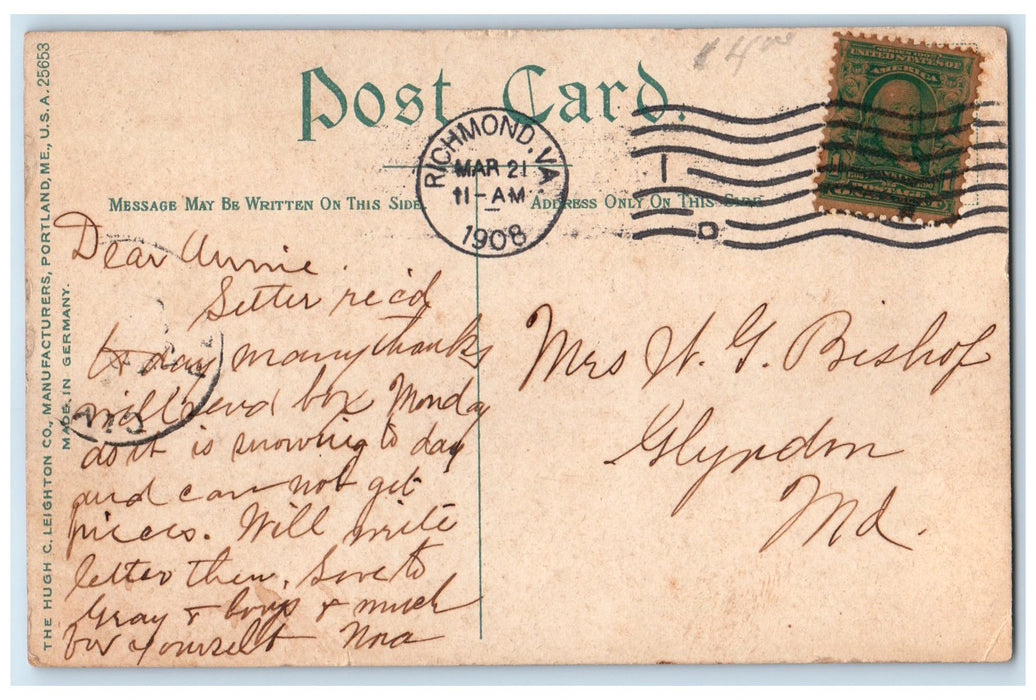 $4.00
Post Card.
RICHMOND, VA.
MAR 21
11-AM
1908
1
D
SERIES 1902
UNITED STATES OF
AMERICA
FRANKLIN
MESSAGE MAY BE WRITTEN ON THIS SIDE
ADDRESS ONLY ON THIS SIDE
THE HUGH C. LEIGHTON CO., MANUFACTURERS, PORTLAND, ME., U.S.A. 25653
MADE IN GERMANY.
Dear Annie.
Letter rec'd
to day many thanks
will send box Monday
as it is snowing to day
and can not get
pieces. Will write
letter then. Love to
Gray & boys & much
for yourself Nora
Mrs W. G. Bishop
Glyndon
Md.